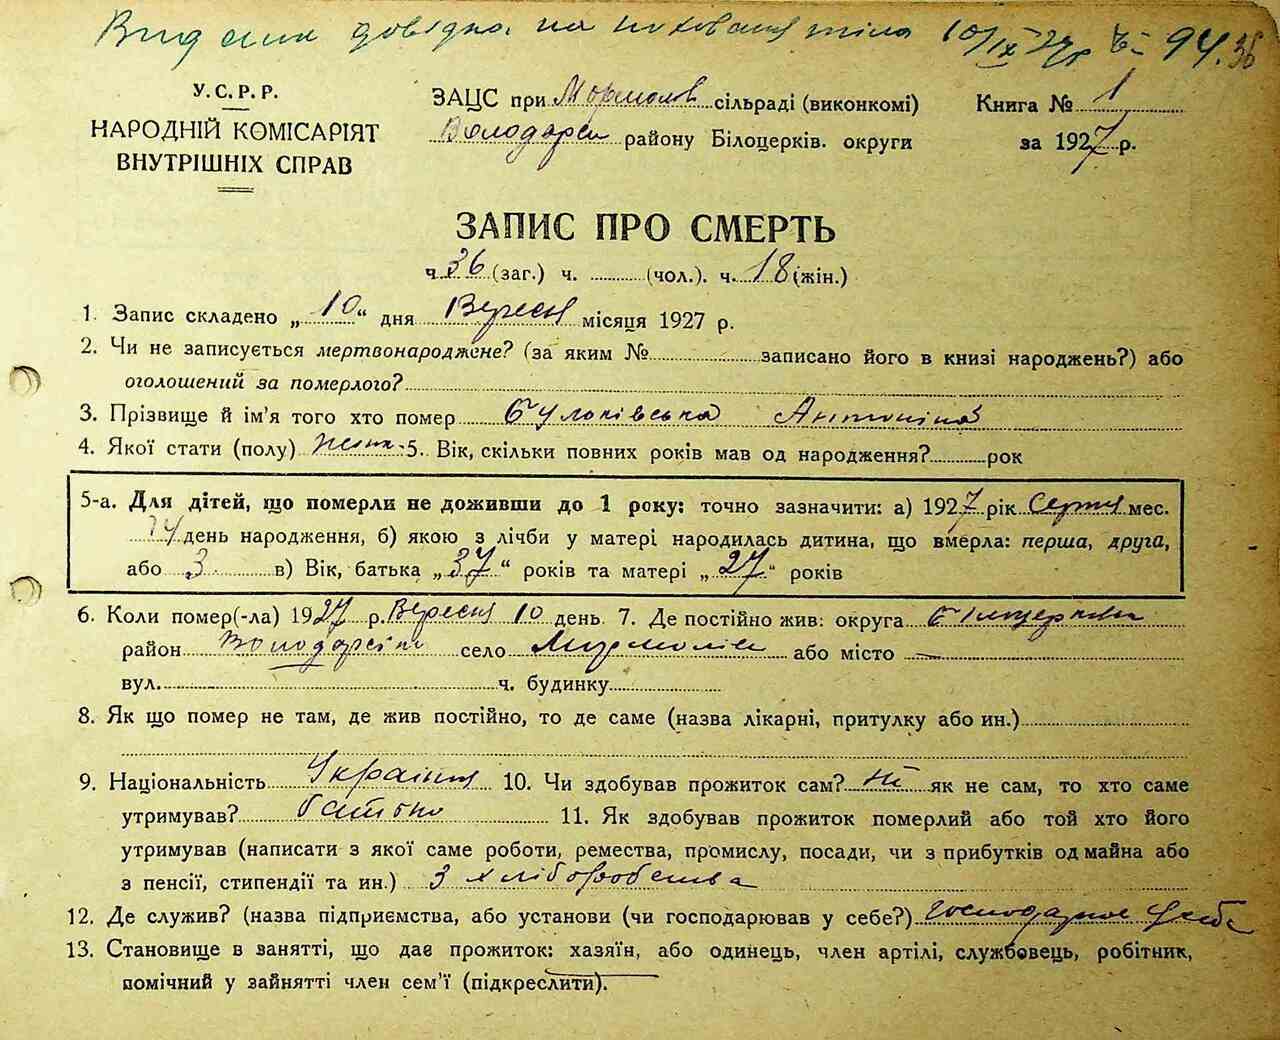 довідка на тіла 10/IX 27р 94. 36
У.С.Р.Р.
НАРОДНІЙ КОМІСАРІЯТ
ВНУТРІШНІХ СПРАВ
ЗАЦС при Мормолів сільраді (виконкомі)
Володарсь району Білоцерків. округи
Книга № 1
за 1927 р.
ЗАПИС ПРО СМЕРТЬ
ч. 36 (заг.) ч. (чол.). ч. 18 (жін.)
1. Запис складено „ 10 “ дня Вересня місяця 1927 р.
2. Чи не записується мертвонароджене? (за яким № записано його в книзі народжень?) або
оголошений за померлого?
3. Прізвище й ім'я того хто помер Антоніна
4. Якої стати (полу) жіноч. 5. Вік, скільки повних років мав од народження? рок
5-а. Для дітей, що померли не доживши до 1 року: точно зазначити: а) 1927 рік Серпня мес.
день народження, б) якою з лічби у матері народилась дитина, що вмерла: перша, друга,
або 3 в) Вік, батька „ 37 “ років та матері „ 27 “ років
6. Коли помер(-ла) 1927 р. Вересня 10 день 7. Де постійно жив: округа Білоцерківськ
район Володарськ село Мормолів або місто —
вул. ч. будинку
8. Як що помер не там, де жив постійно, то де саме (назва лікарні, притулку або ин.)
9. Національність Українка 10. Чи здобував прожиток сам? Ні як не сам, то хто саме
утримував? батько 11. Як здобував прожиток померлий або той хто його
утримував (написати з якої саме роботи, ремества, промислу, посади, чи з прибутків од майна або
з пенсії, стипендії та ин.) З хліборобства
12. Де служив? (назва підприємства, або установи (чи господарював у себе?) господарює у себе
13. Становище в занятті, що дає прожиток: хазяїн, або одинець, член артілі, службовець, робітник,
помічний у зайнятті член сем'ї (підкреслити).